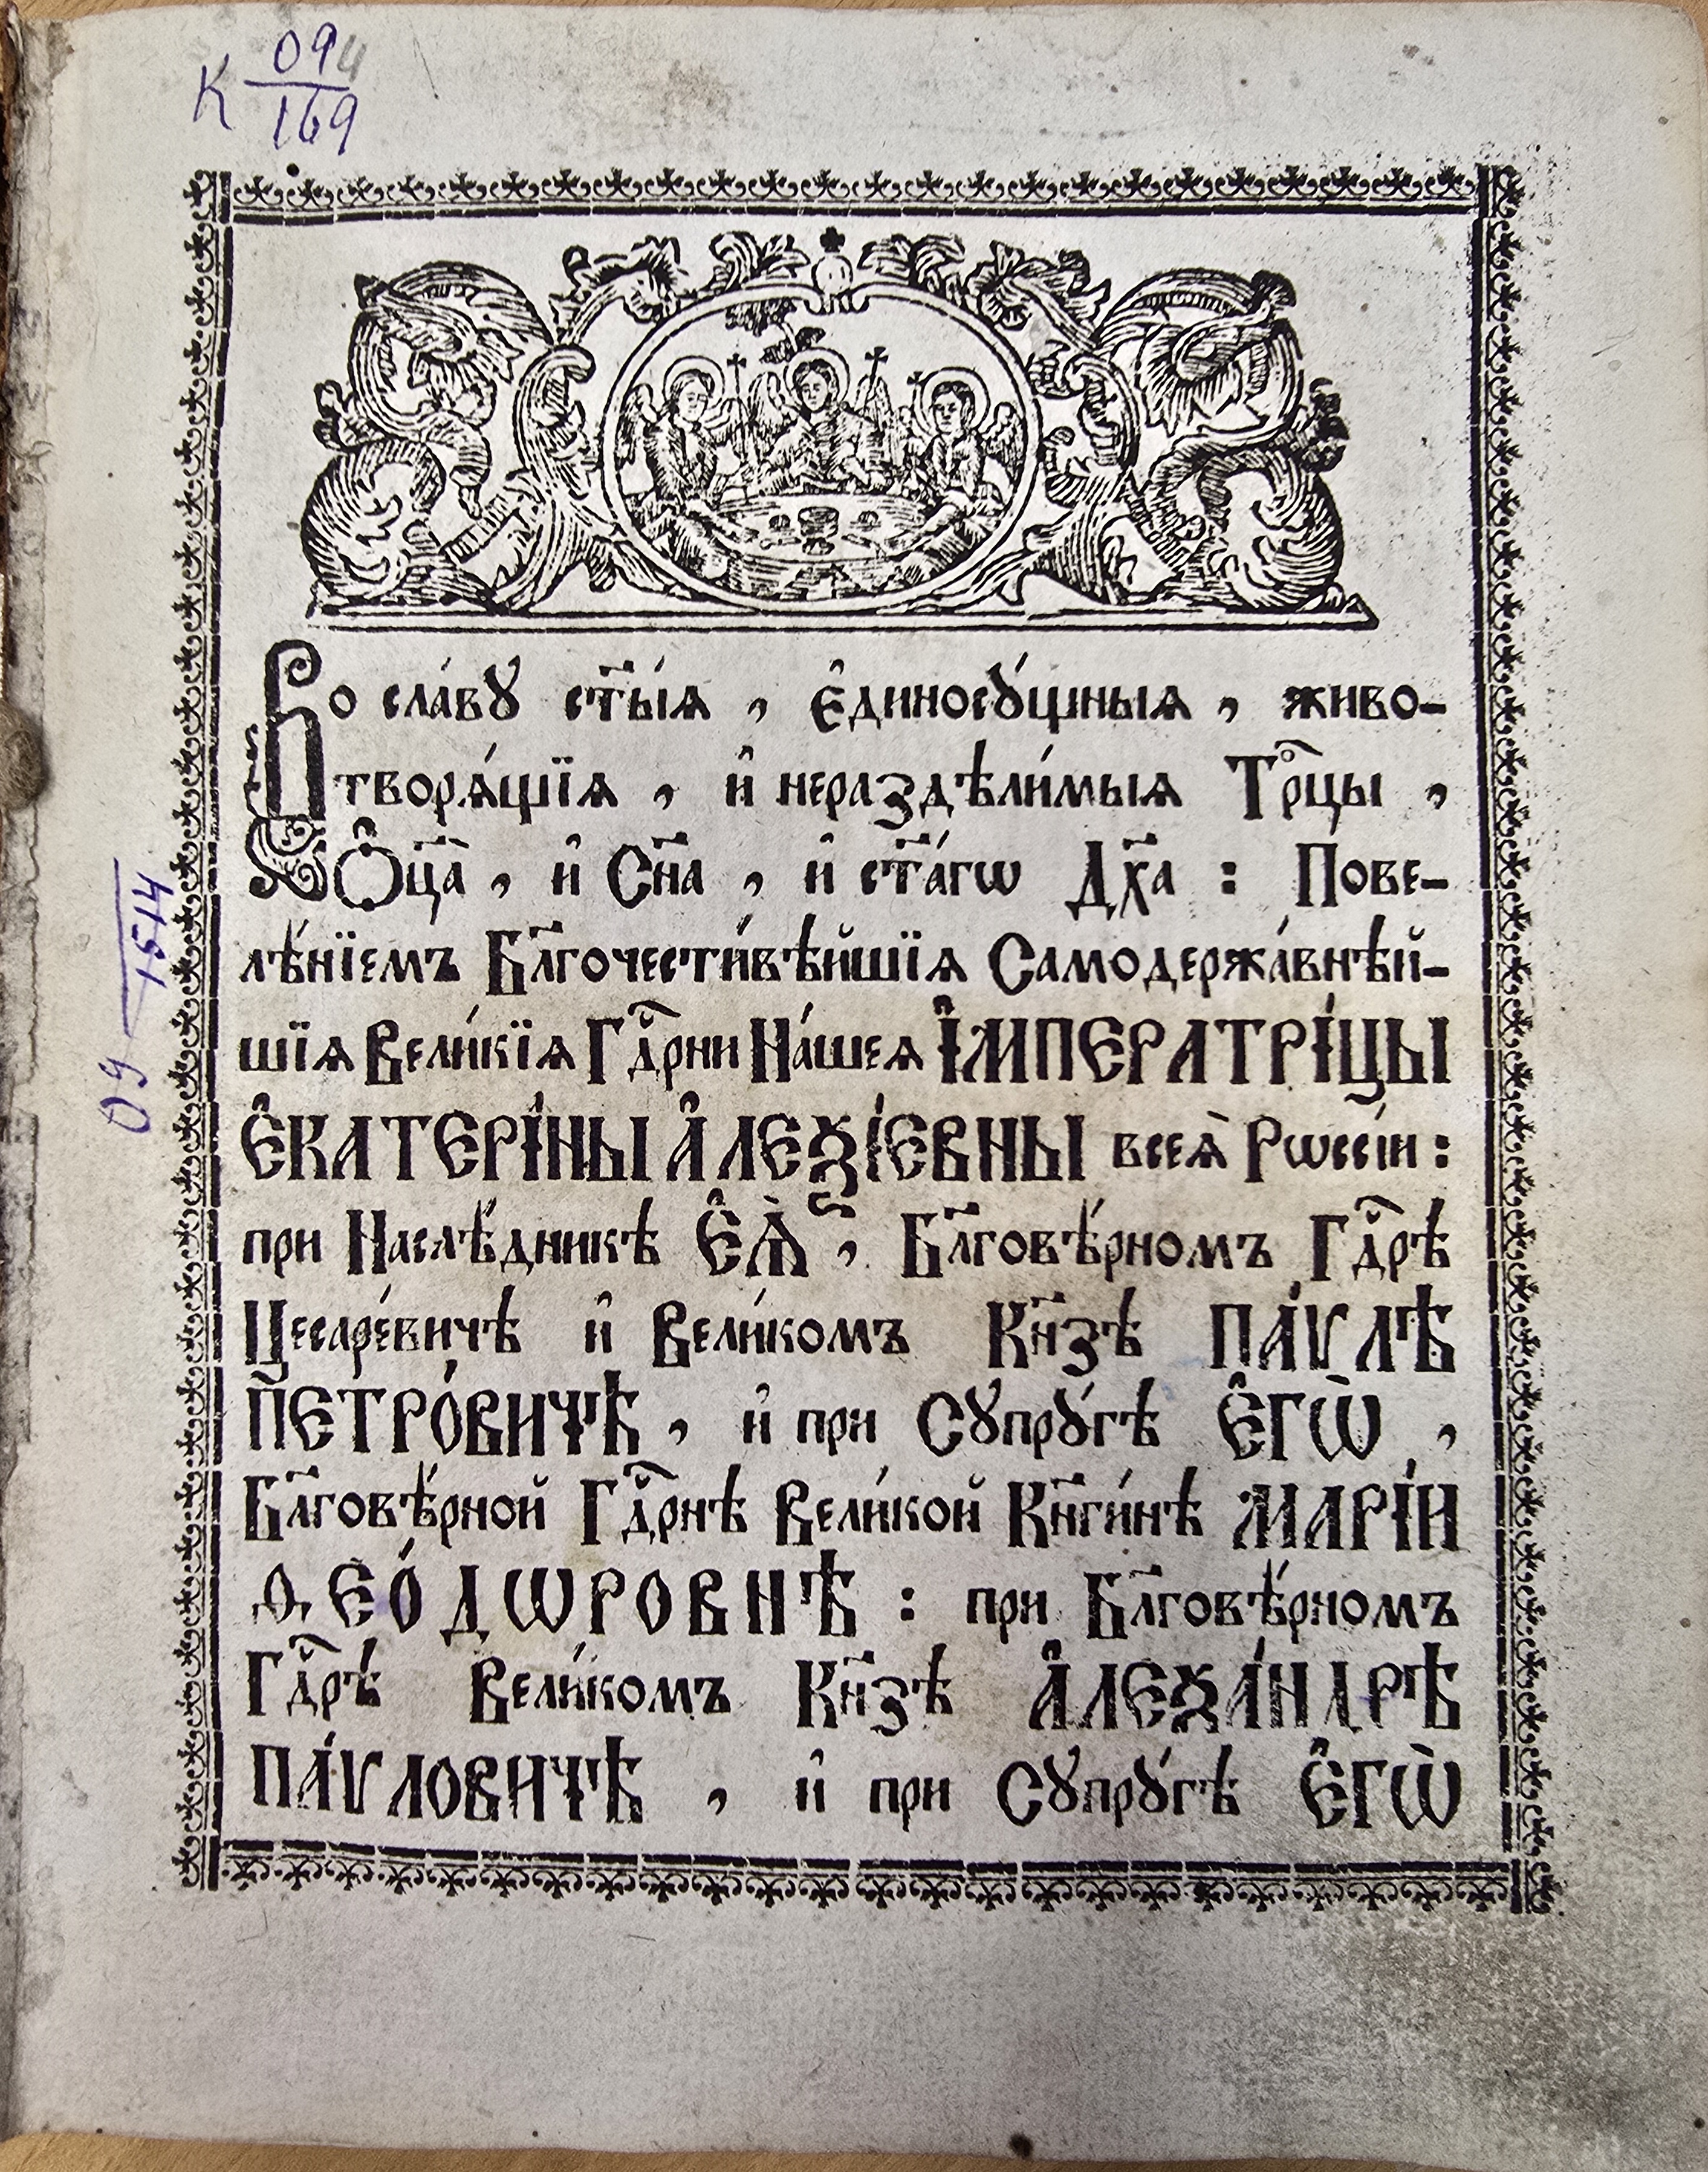 К 094/169
Во сла́вꙋ ст҃ы́ѧ , є҆диносꙋ́щныѧ , живо-
творѧ́щїѧ , и҆ нераздѣли́мыѧ Трⷪ҇цы ,
Ѻ҆ц҃а̀ , и҆ Сн҃а , и҆ ст҃а́гѡ Дх҃а : Пове-
лѣ́нїемъ Бл҃гочести́вѣйшїѧ Самодержа́внѣй-
шїѧ Вели́кїѧ Гдⷭ҇рни На́шеѧ І҆МПЕРАТРІ́ЦЫ
Є҆КАТЕРІ́НЫ А҆ЛЕѮІ́ЕВНЫ всеѧ̀ Рѡссі́и :
при Наслѣ́дникѣ Є҆Ѧ̀ , Бл҃говѣ́рномъ Гдⷭ҇рѣ
Цесаре́вичѣ и҆ Вели́комъ Кн҃зѣ ПА́ѴЛѢ
ПЕТРО́ВИЧѢ , и҆ при Сꙋпрꙋ́гѣ Є҆ГѠ̀ ,
Бл҃говѣ́рной Гдⷭ҇рнѣ Вели́кой Кн҃ги́нѣ МАРІ́И
Ѳ҆ЕО́ДѠРОВНѢ : при Бл҃говѣ́рномъ
Гдⷭ҇рѣ́ Вели́комъ Кн҃зѣ А҆ЛЕѮА́НДРѢ
ПА́ѴЛОВИЧѢ , и҆ при Сꙋпрꙋ́гѣ Є҆ГѠ̀
09 1514